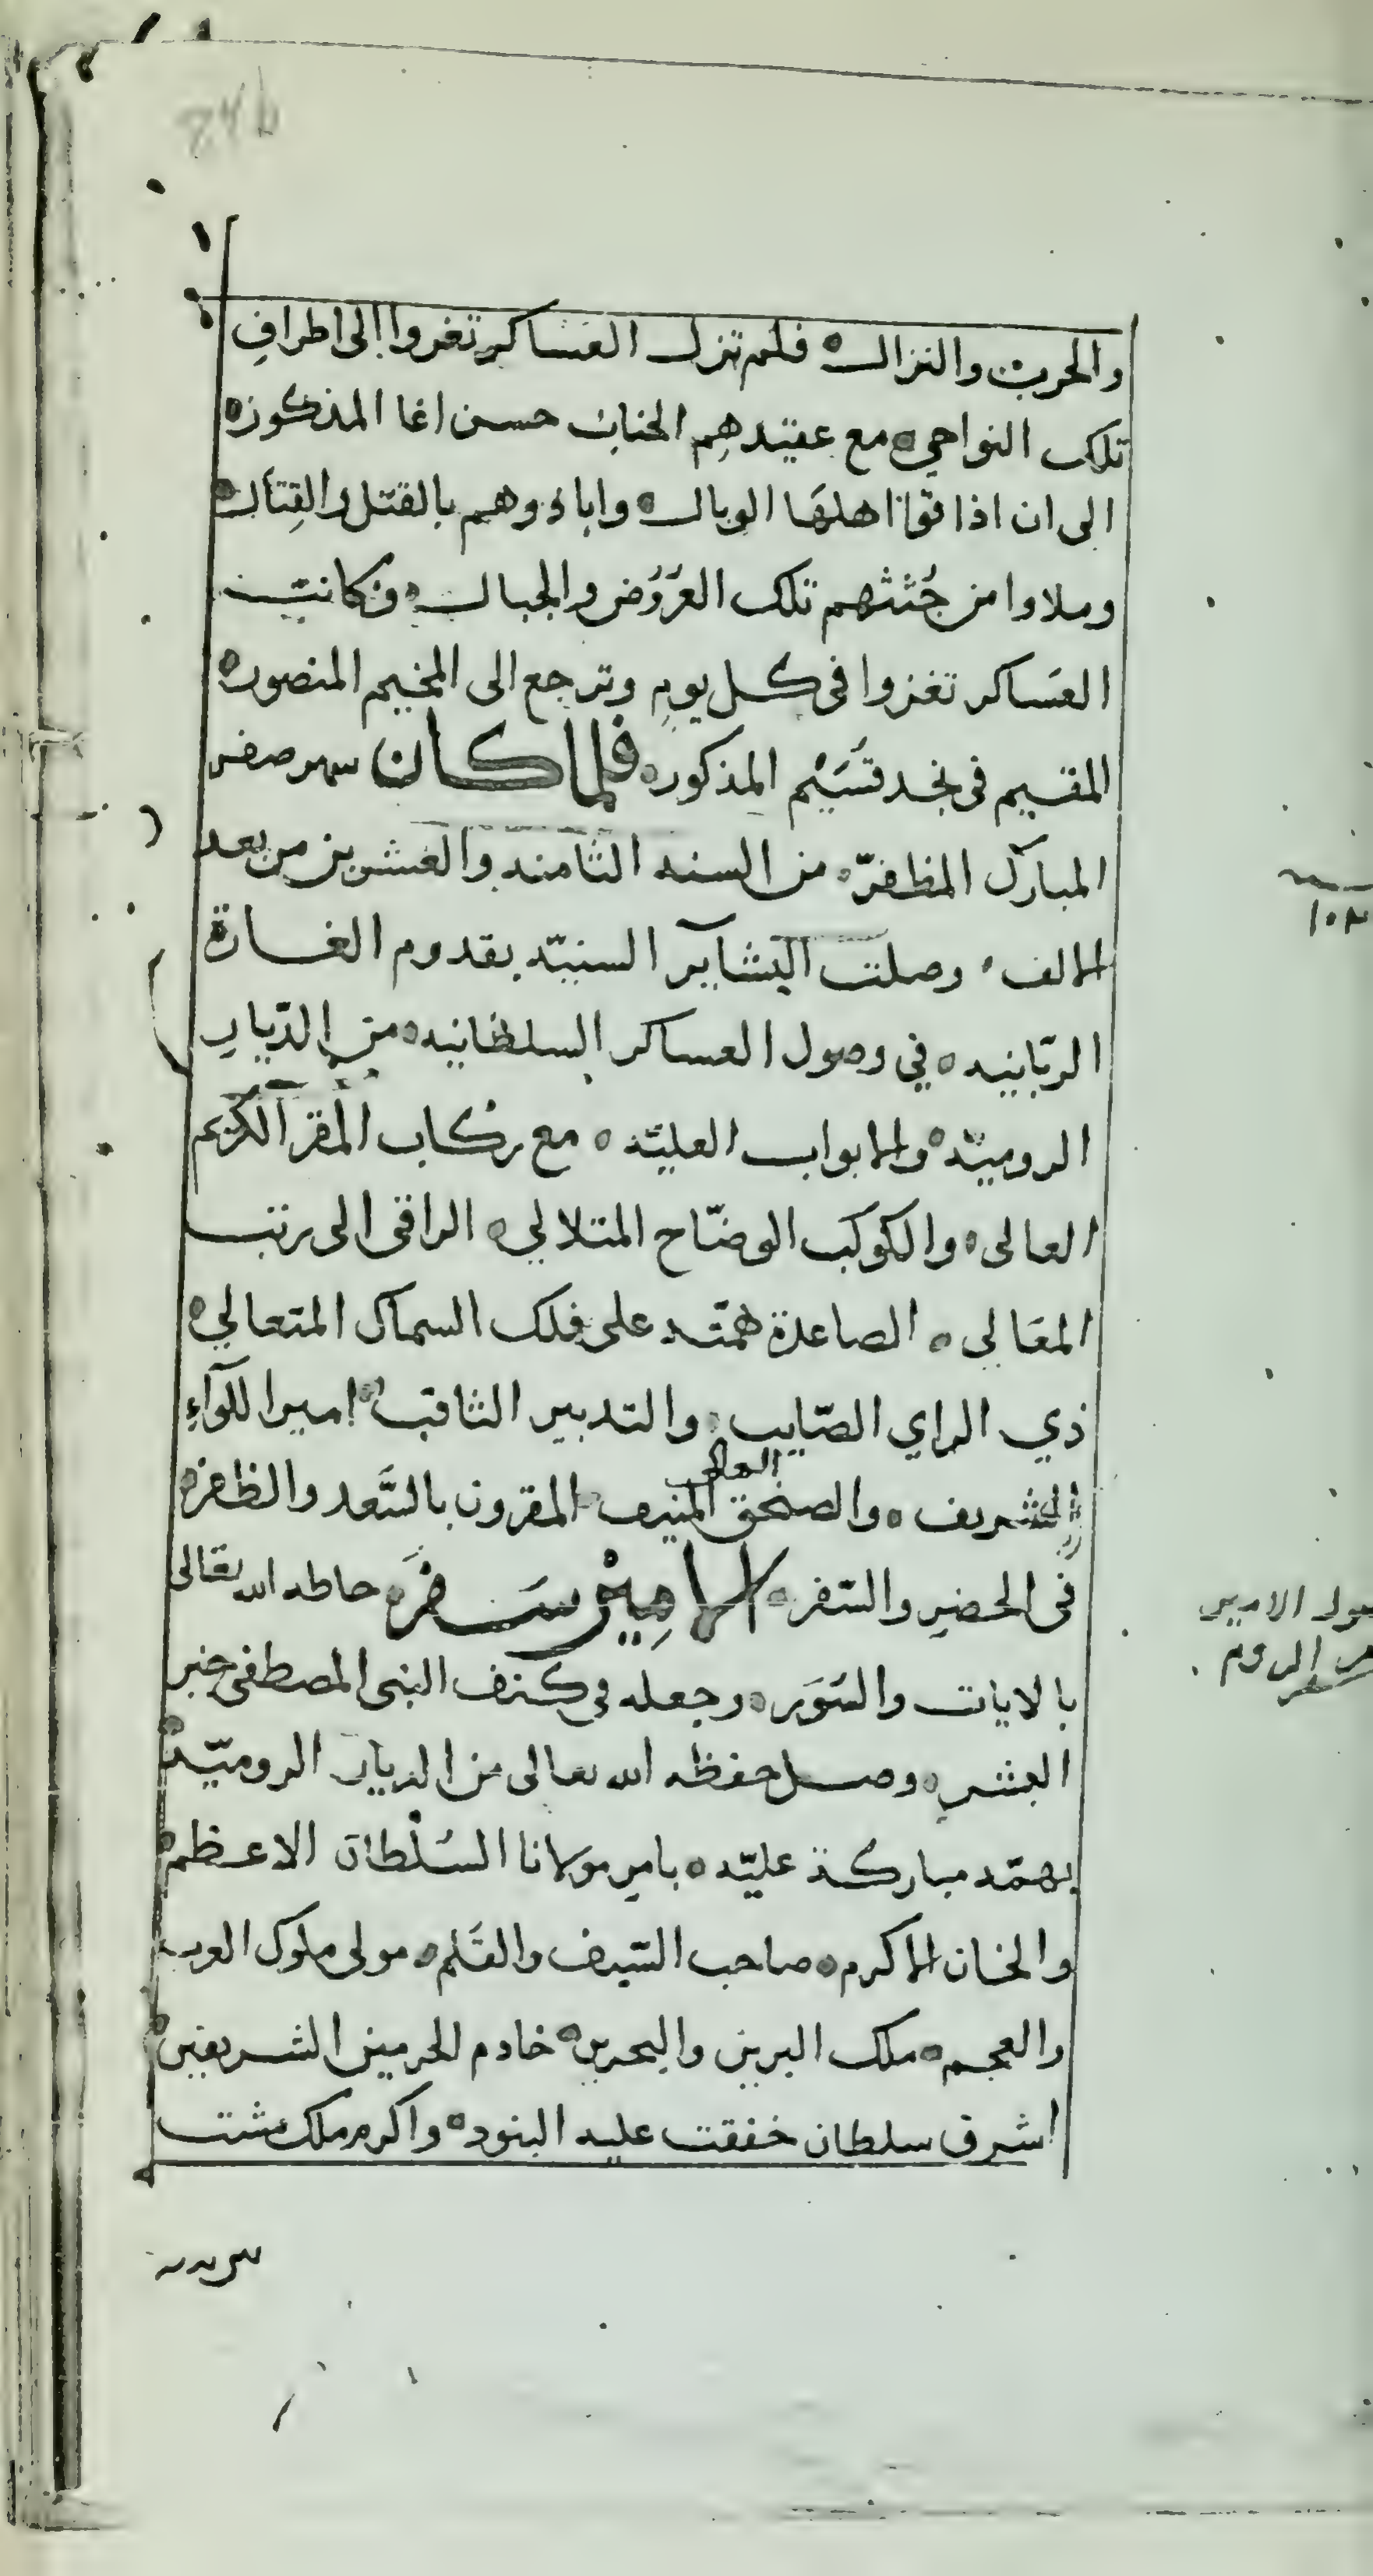 والحرب والنزال ه فلم تزل العساكر تغزوا الى اطراف
تلك النواحي ه مع عقيدهم الجناب حسن اغا المذكور ه
الى ان اذاقوا اهلها الوبال ه وابادوهم بالقتل والقتال ه
وملاوا من جُثثهم تلك العَرَوض والجبال ه وكانت
العساكر تغزوا فى كل يوم وترجع الى المخيم المنصور ه
المقيم فى نجد قسَيْم المذكور ه فلما كان شهر صفر
المبارك المظفرّ ه من السنه الثامنه والعشرين من بعد
الالف ه وصلت البشاير السنيّه بقدوم الغارة
الربّانيه ه في وصول العساكر السلطانيه ه من الدّيار
الروميّه ه والابواب العليّه ه مع ركاب المقر الكريم
العالى ه والكوكب الوضّاح المتلالي ه الراقى الى رتب
المعَالى ه الصاعدة همّته على فلك السماك المتعالي ه
ذي الراي الصّايب ه والتدبير الثاقب ه امير اللوآء
الشريف ه والصنجق العالى المنيف ه المقرون بالسَّعد والظفر ه
فى الحضر والسّفر ه الامير سَفر ه حاطه الله تعالى
بالايات والسّوَر ه وجعله في كنف النبى المصطفى خير
البشر ه وصل حفظه الله تعالى من الديار الروميّه ه
بهمّه مباركة عليّه ه بامر مولانا السُلْطان الاعظم ه
والخان الاكرم ه صاحب السّيف والقَلم ه مولى ملوك العرب
والعجم ه ملك البرين والبحرين ه خادم الحرمين الشريفين ه
اشرف سلطان خفقت عليه البنود ه واكرم ملك مشت
١٠٢
الامير
الروم